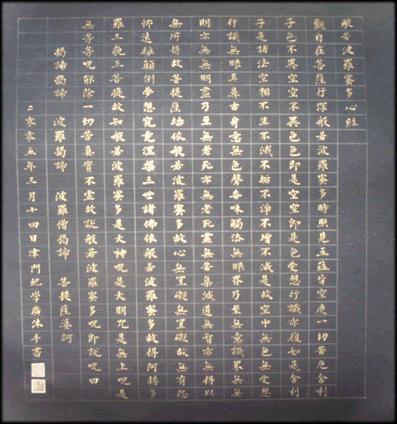 般若波羅蜜多心經
觀自在菩薩行深般若波羅蜜多時照見五蘊皆空度一切苦厄舍利
子色不異空空不異色色即是空空即是色受想行識亦復如是舍利
子是諸法空相不生不滅不垢不淨不增不減是故空中無色無受想
行識無眼耳鼻舌身意無色聲香味觸法無眼界乃至無意識界無無
明亦無無明盡乃至無老死亦無老死盡無苦集滅道無智亦無得以
無所得故菩提薩埵依般若波羅蜜多故心無罣礙無罣礙故無有恐
怖遠離顛倒夢想究竟涅槃三世諸佛依般若波羅蜜多故得阿耨多
羅三藐三菩提故知般若波羅蜜多是大神呪是大明呪是無上呪是
無等等呪能除一切苦真實不虛故說般若波羅蜜多呪即說呪曰
揭諦揭諦 波羅揭諦 波羅僧揭諦 菩提薩婆訶
二零零五年三月十四日津門紀學廣沐手書